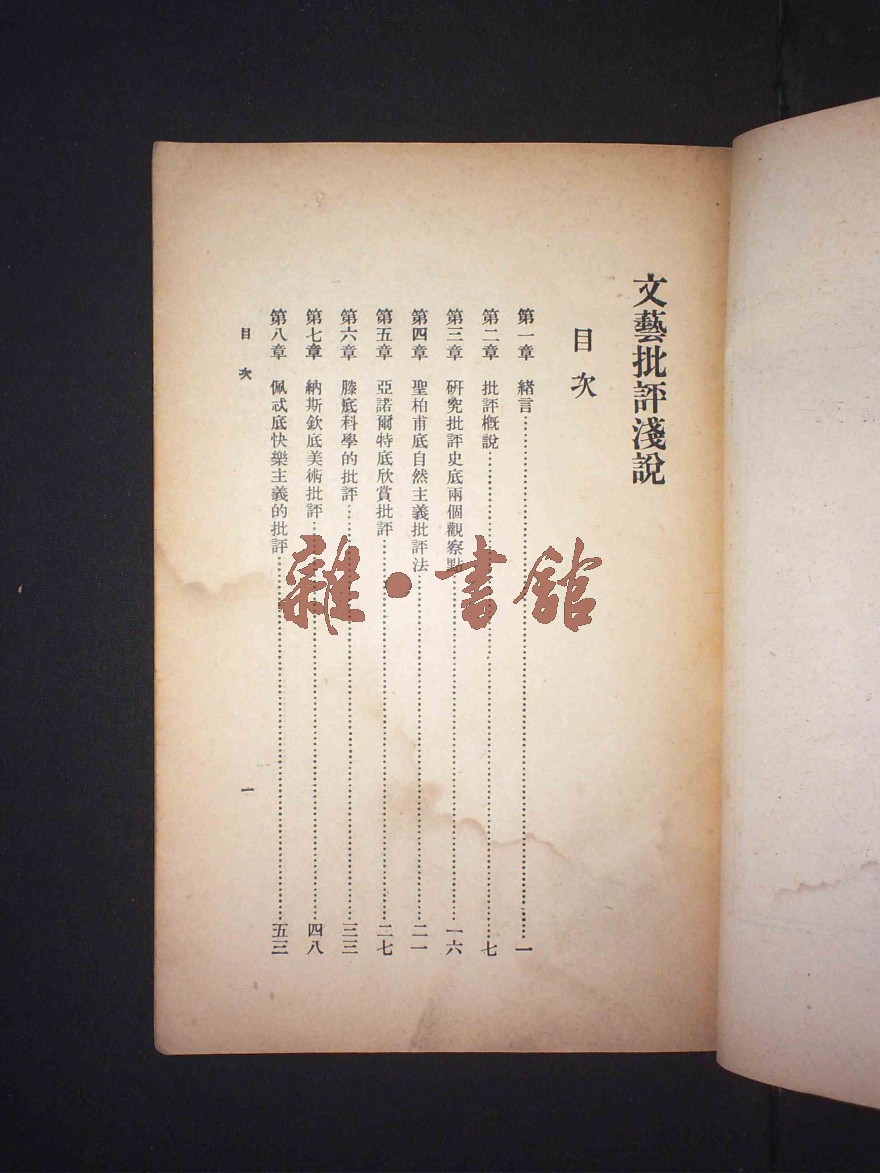 文藝批評淺說
目次
第一章 緒言……一
第二章 批評概說……七
第三章 研究批評史底兩個觀察點……一六
第四章 聖柏甫底自然主義批評法……二一
第五章 亞諾爾特底欣賞批評……二七
第六章 滕底科學的批評……三三
第七章 納斯欽底美術批評……四八
第八章 佩忒底快樂主義的批評……五三
目次
一
雜•書館